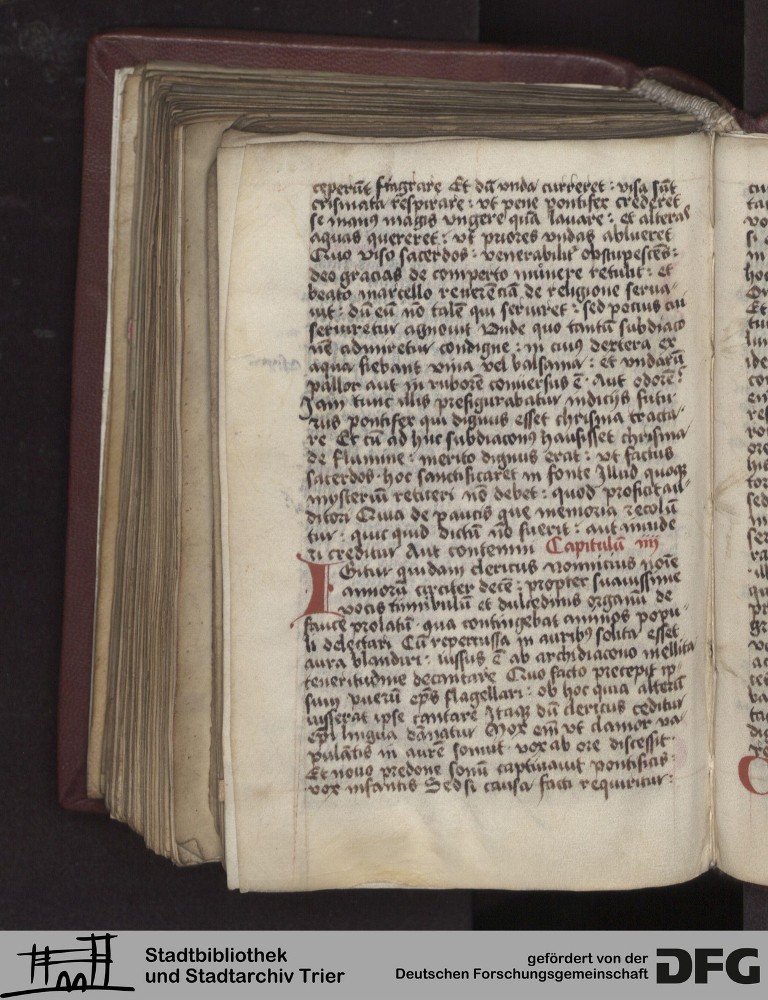 ceperūt fragrare Et dū unda curreret : visa sūt
crismata respirare : ut pene pontifex crederet
se manꝰ magis ungere quā lavare : et alteras
aquas quereret : ut priores undas ablueret
Quo viso sacerdos : venerabilit obstupescēs :
deo gracias de comperto munere retulit : et
beato marcello reverēciā de religione serva-
vit : dū eū nō talē qui serviret : sed pocius cui
serviretur agnovit Unde quo tantū subdiaco
nē admiretur condigne : in cuiꝰ dextera ex
aqua fiebant vina vel balsama : et undarū
pallor aut in ruborē conversus ē · Aut odorē :
Jam tunc illis presigurabatur indiciis futu-
rus pontifex qui dignus esset chrisma tracta-
re Et cū ad huc subdiaconꝰ hausisset chrisma
de flumine : merito dignus erat : ut factus
sacerdos · hoc sanctificaret in fonte Illud quoqꝫ
mysteriū reticeri nō debet : quod proficit au-
ditori Quia de paucis que memoria recolū
tur : quic quid dictū nō fuerit : aut invide
ri creditur Aut contemni Capitulū iiii
Igitur quidam clericus nomnicius noīe
annorū circiter decē : propter suavissime
vocis tinnibulū et dulcedinis organū de
fauce prolatū · qua contingebat animos popu-
li delectari Cū repercussa in auribꝰ solita esset
aura blandiri : iussus ē ab archidiacono mellita
teneritudine decantare Quo facto precepit ip-
sum puerū ep̄s flagellari : ob hoc quia alterū
iusserat ipse cantare Itaqꝫ dū clericus ceditur
ep̄i lingua dānatur Mox em̄ ut clamor va-
pulātis in aurē sonuit · vox ab ore discessit
Et novo predone sonū captivavit pontificis :
vox infantis Sed si causa facti requiritur :
Stadtbibliothek
und Stadtarchiv Trier
gefördert von der
Deutschen Forschungsgemeinschaft
DFG